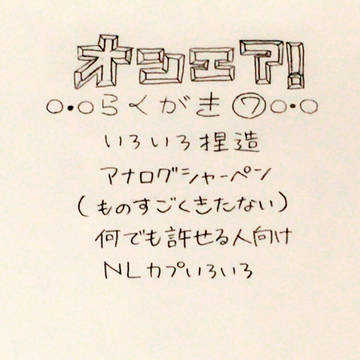 オンエア!
○•○らくがき⑦○•○
いろいろ捏造
アナログシャーペン
(ものすごくきたない)
何でも許せる人向け
NLカプいろいろ